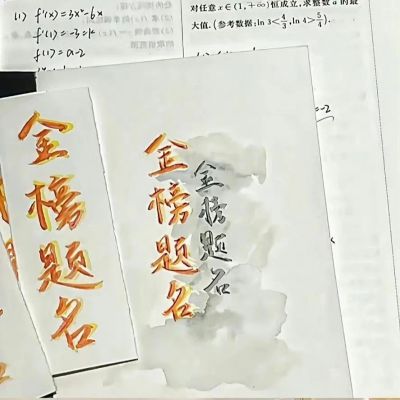 (1) f'(x)=3x²-6x
f'(1)=-3=k
f(1)=a-2
对任意x∈(1,+∞)恒成立,求整数a的最
大值.(参考数据:ln 3<4/3,ln 4>5/4).
=-2
金榜题名
金榜题名
金榜题名